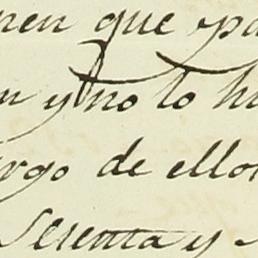 nen que pa
n y no lo h
rgo de ello
Setenta y